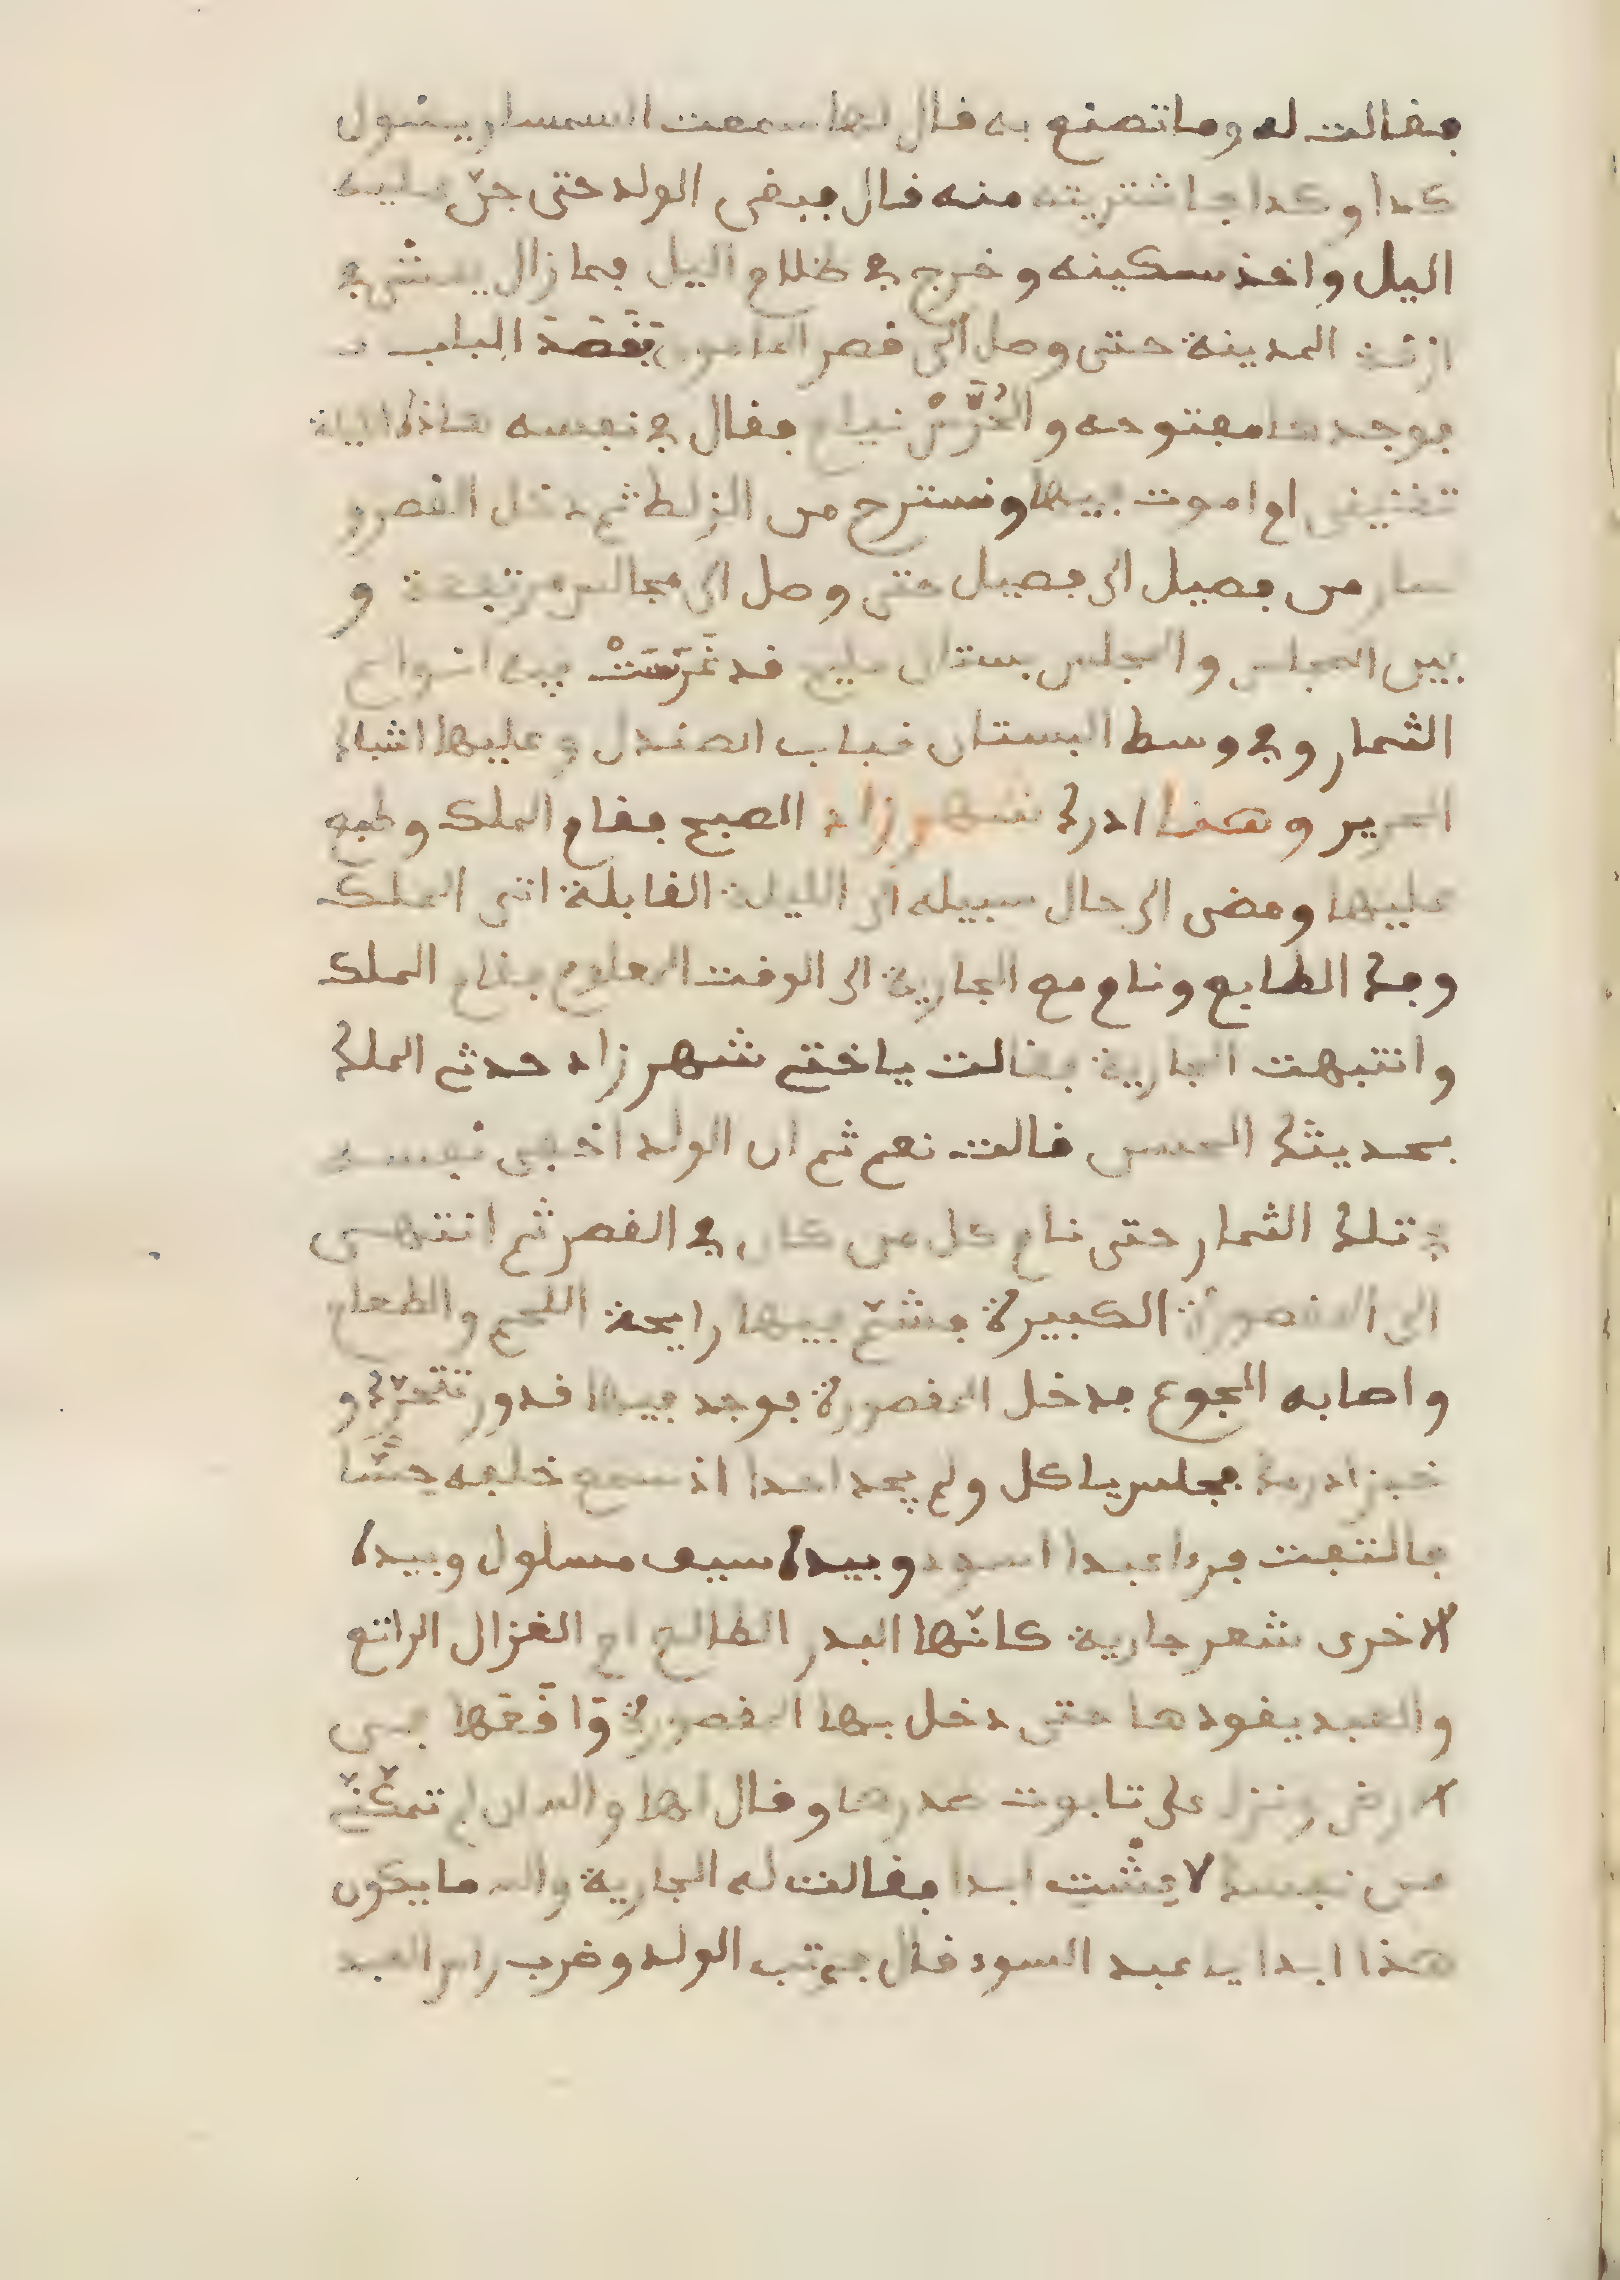 فقالت له وما تصنع به قال لها سمعت السمسار يقول
كدا وكدا فاشتريته منه قال فبقى الولد حتى جنّ عليه
اليل واخذ سكينه وخرج في ظلام اليل فما زال يمشي في
ازقة المدينة حتى وصل الى قصر المامون فَقَصَدَ الباب
فوجدها مفتوحه والحُرَّسْ نيام فقال في نفسه هاذه اليلة
تغنيني او اموت فيها ونسترح من الزلط ثم دخل القصر و
سار من فصيل الى فصيل حتى وصل الى مجالس مرتفعة و
بين المجلس والمجلس بستان مليح قد غَرَسَتْ فيه انواع
الثمار وفي وسط البستان قباب الصندل وعليها اشباك
الحرير وهنا ادرك شهرزاد الصبح فقام الملك وطبع
عليها ومضى الى حال سبيله الى الليلة القابلة اتى الملك
وفك الطابع ونام مع الجارية الى الوقت المعلوم فقام الملك
وانتبهت الجارية فقالت ياختي شهرزاد حدثي الملك
بحديثك الحسن قالت نعم ثم ان الولد اخفى نفسه
في تلك الثمار حتى نام كل من كان في القصر ثم انتهى
الى المقصورة الكبيرة فشمّ فيها رايحة اللحم والطعام
واصابه الجوع فدخل المقصورة فوجد فيها قدور تتحرّك و
خبز ادرمك فجلس ياكل ولم يجد احدا اذ سمع خلفه حسًّا
فالتفت فرءا عبدا اسود وبيده سيف مسلول وبيده
الاخرى شعر جارية كانّها البدر الطالع او الغزال الراتع
والعبد يقودها حتى دخل بها المقصورة وَاقَعَها في
الارض ونزل على تابوت صدرها وقال لها والله ان لم تمكّنّي
من نفسك لا عِشْتِ ابدا فقالت له الجارية والله ما يكون
هذا ابدا يا عبد السود قال فوتب الولد وضرب راس العبد